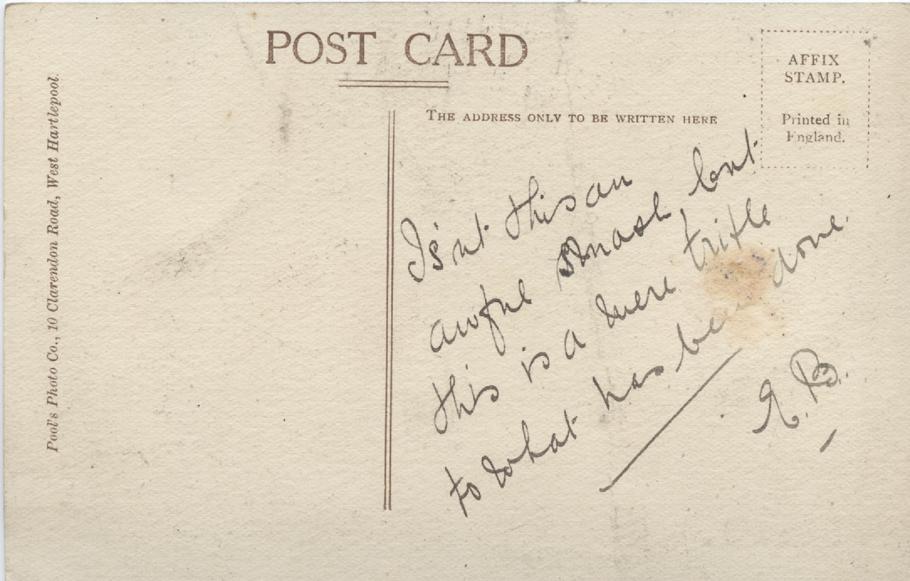 POST CARD
AFFIX
STAMP.
Printed in
England.
THE ADDRESS ONLY TO BE WRITTEN HERE
Pool's Photo Co., 10 Clarendon Road, West Hartlepool
Is'nt this an
awful smash, but
this is a mere trifle
to what has been done.
E. B.